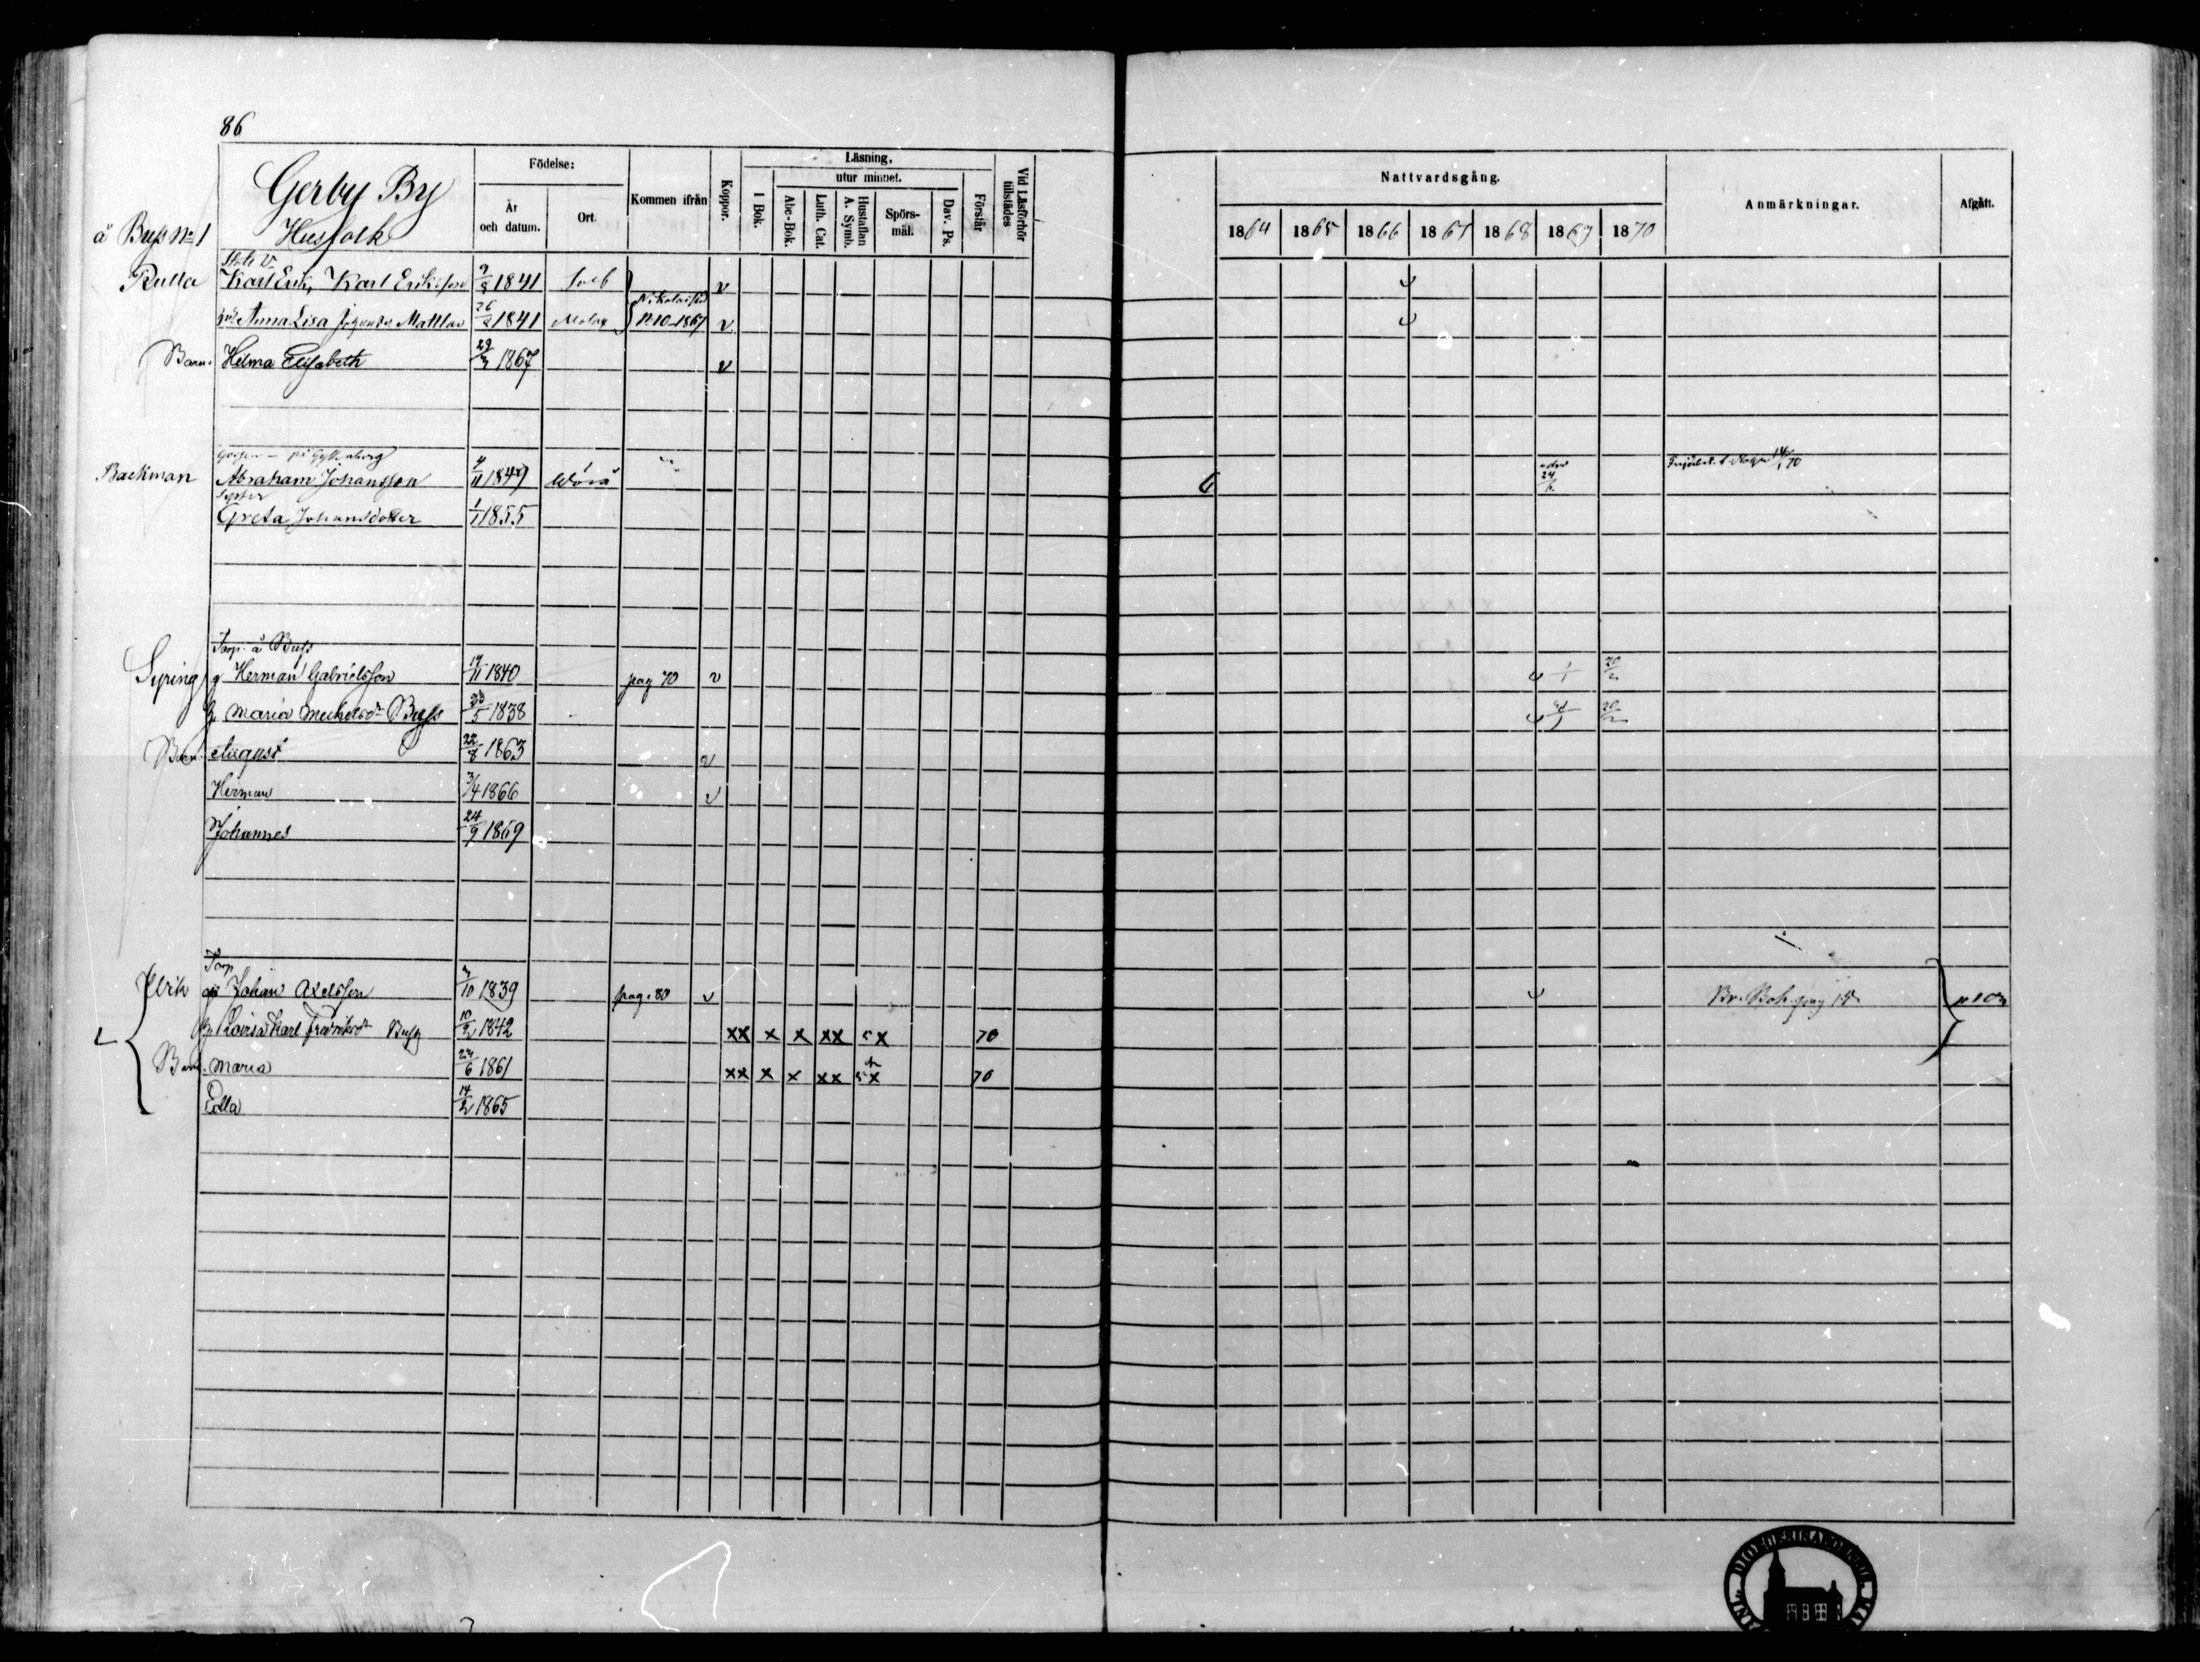 86
Gerby By
Husfolk
å Buss No 1
Födelse:
År och datum.
Ort.
Kommen ifrån
Koppor.
Läsning,
utur minnet.
I Bok.
Abc-Bok.
Luth. Cat.
Hustaflan A. Symb.
Spörs-mål.
Dav. Ps.
Förstår
Vid Läsförhör tillstädes
Nattvardsgång.
1864 1865 1866 1867 1868 1869 1870
Anmärkningar.
Afgått.
Rulla Karl Erik, Karl Eriksson 1841 v
Anna Lisa Mattlar 26/2 1841 Malax 1867 v
Barn. Helma Elisabeth 29/3 1867 v
på Gyllenberg
Backman Abraham Johansson 4/11 1849 Wörå 24/6
Syster
Greta Johansdotter 1/1 1855
Torp. å Buss
Syring g Herman Gabrielsson 14/11 1840 pag 70 v
g. Maria Buss 23/5 1838
Barn August 22/8 1863 v
Herman 3/4 1866 v
Johannes 24/9 1869
Torp
Ulrik Johan Axelsson 3/10 1839 pag. 80 v Br. Bok. pag 15
Lovisa Karl 10/2 1842 xx x x xx x 70
Barn. Maria 24/6 1861 xx x x xx x 70
Edla 14/2 1865